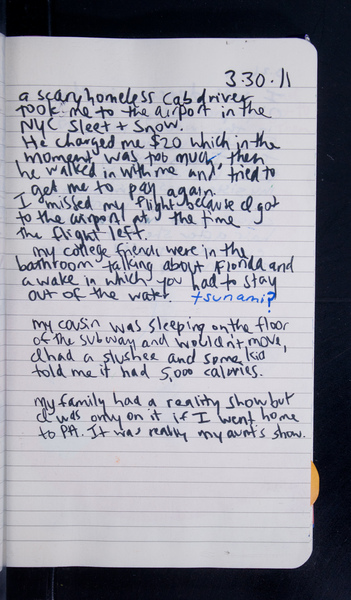 3.30.11
a scary homeless cab driver
took me to the airport in the
NYC Sleet + Snow.
He charged me $20 which in the
moment was too much, then
he walked in with me and tried to
get me to pay again.
I missed my flight because I got
to the airport at the time
the flight left.
my college friends were in the
bathroom talking about Florida and
a wake in which you had to stay
out of the water. tsunami?
my cousin was sleeping on the floor
of the subway and wouldn't move,
I had a slushee and some kid
told me it had 5,000 calories.
my family had a reality show but
I was only on it if I went home
to PA. It was really my aunt's show.